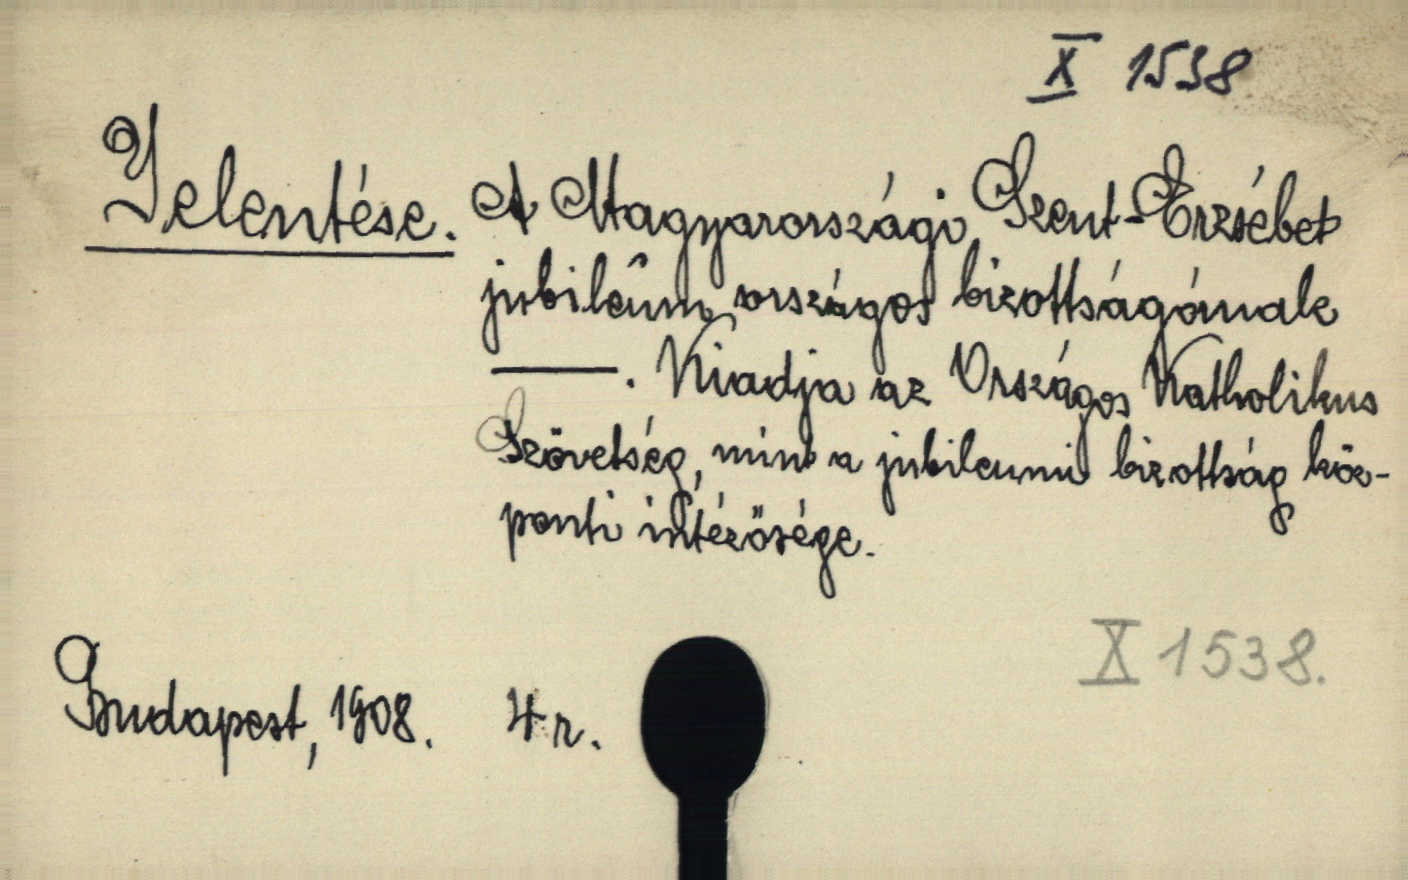 X 1538
Jelentése. A Magyarországi Szent-Erzsébet
jubileum országos bizottságának
———. Kiadja az Országos Katholikus
Szövetség, mint a jubileumi bizottság köz-
ponti intézősége.
X 1538.
Budapest, 1908. 4r.